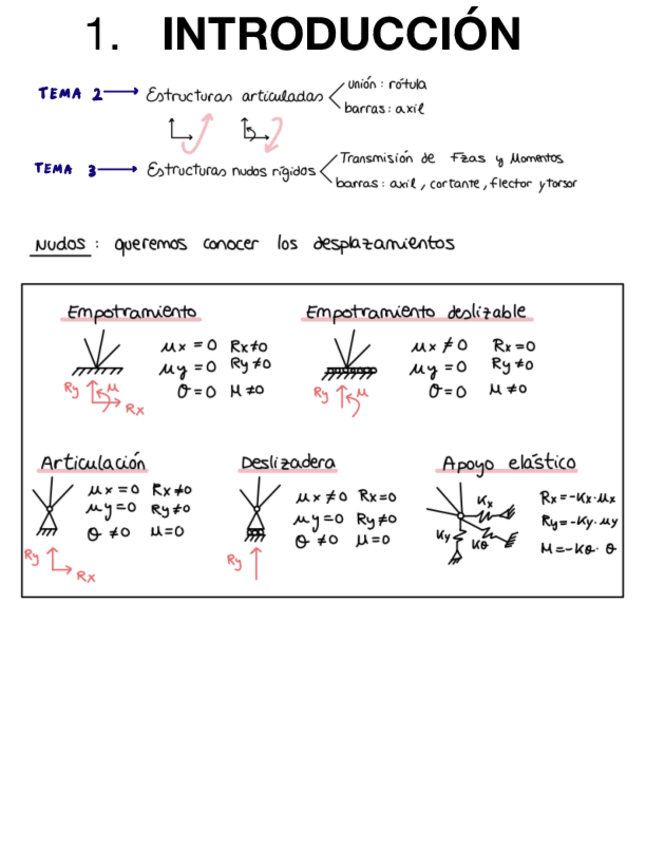 1. INTRODUCCIÓN
TEMA 2 → Estructuras articuladas < unión: rótula
barras: axil
TEMA 3 → Estructuras nudos rígidos < Transmisión de Fzas y Momentos
barras: axil, cortante, flector y torsor
Nudos: queremos conocer los desplazamientos
Empotramiento
μx = 0 Rx≠0
μy = 0 Ry≠0
θ = 0 M ≠0
Ry M Rx
Empotramiento deslizable
μx ≠ 0 Rx = 0
μy = 0 Ry ≠0
θ = 0 M ≠0
Ry M
Articulación
μx = 0 Rx≠0
μy=0 Ry≠0
θ ≠0 M=0
Ry Rx
Deslizadera
μx ≠0 Rx=0
μy=0 Ry≠0
θ ≠0 M=0
Ry
Apoyo elástico
Kx
Ky Kθ
Rx=-Kx·μx
Ry=-Ky·μy
M=-Kθ· θ